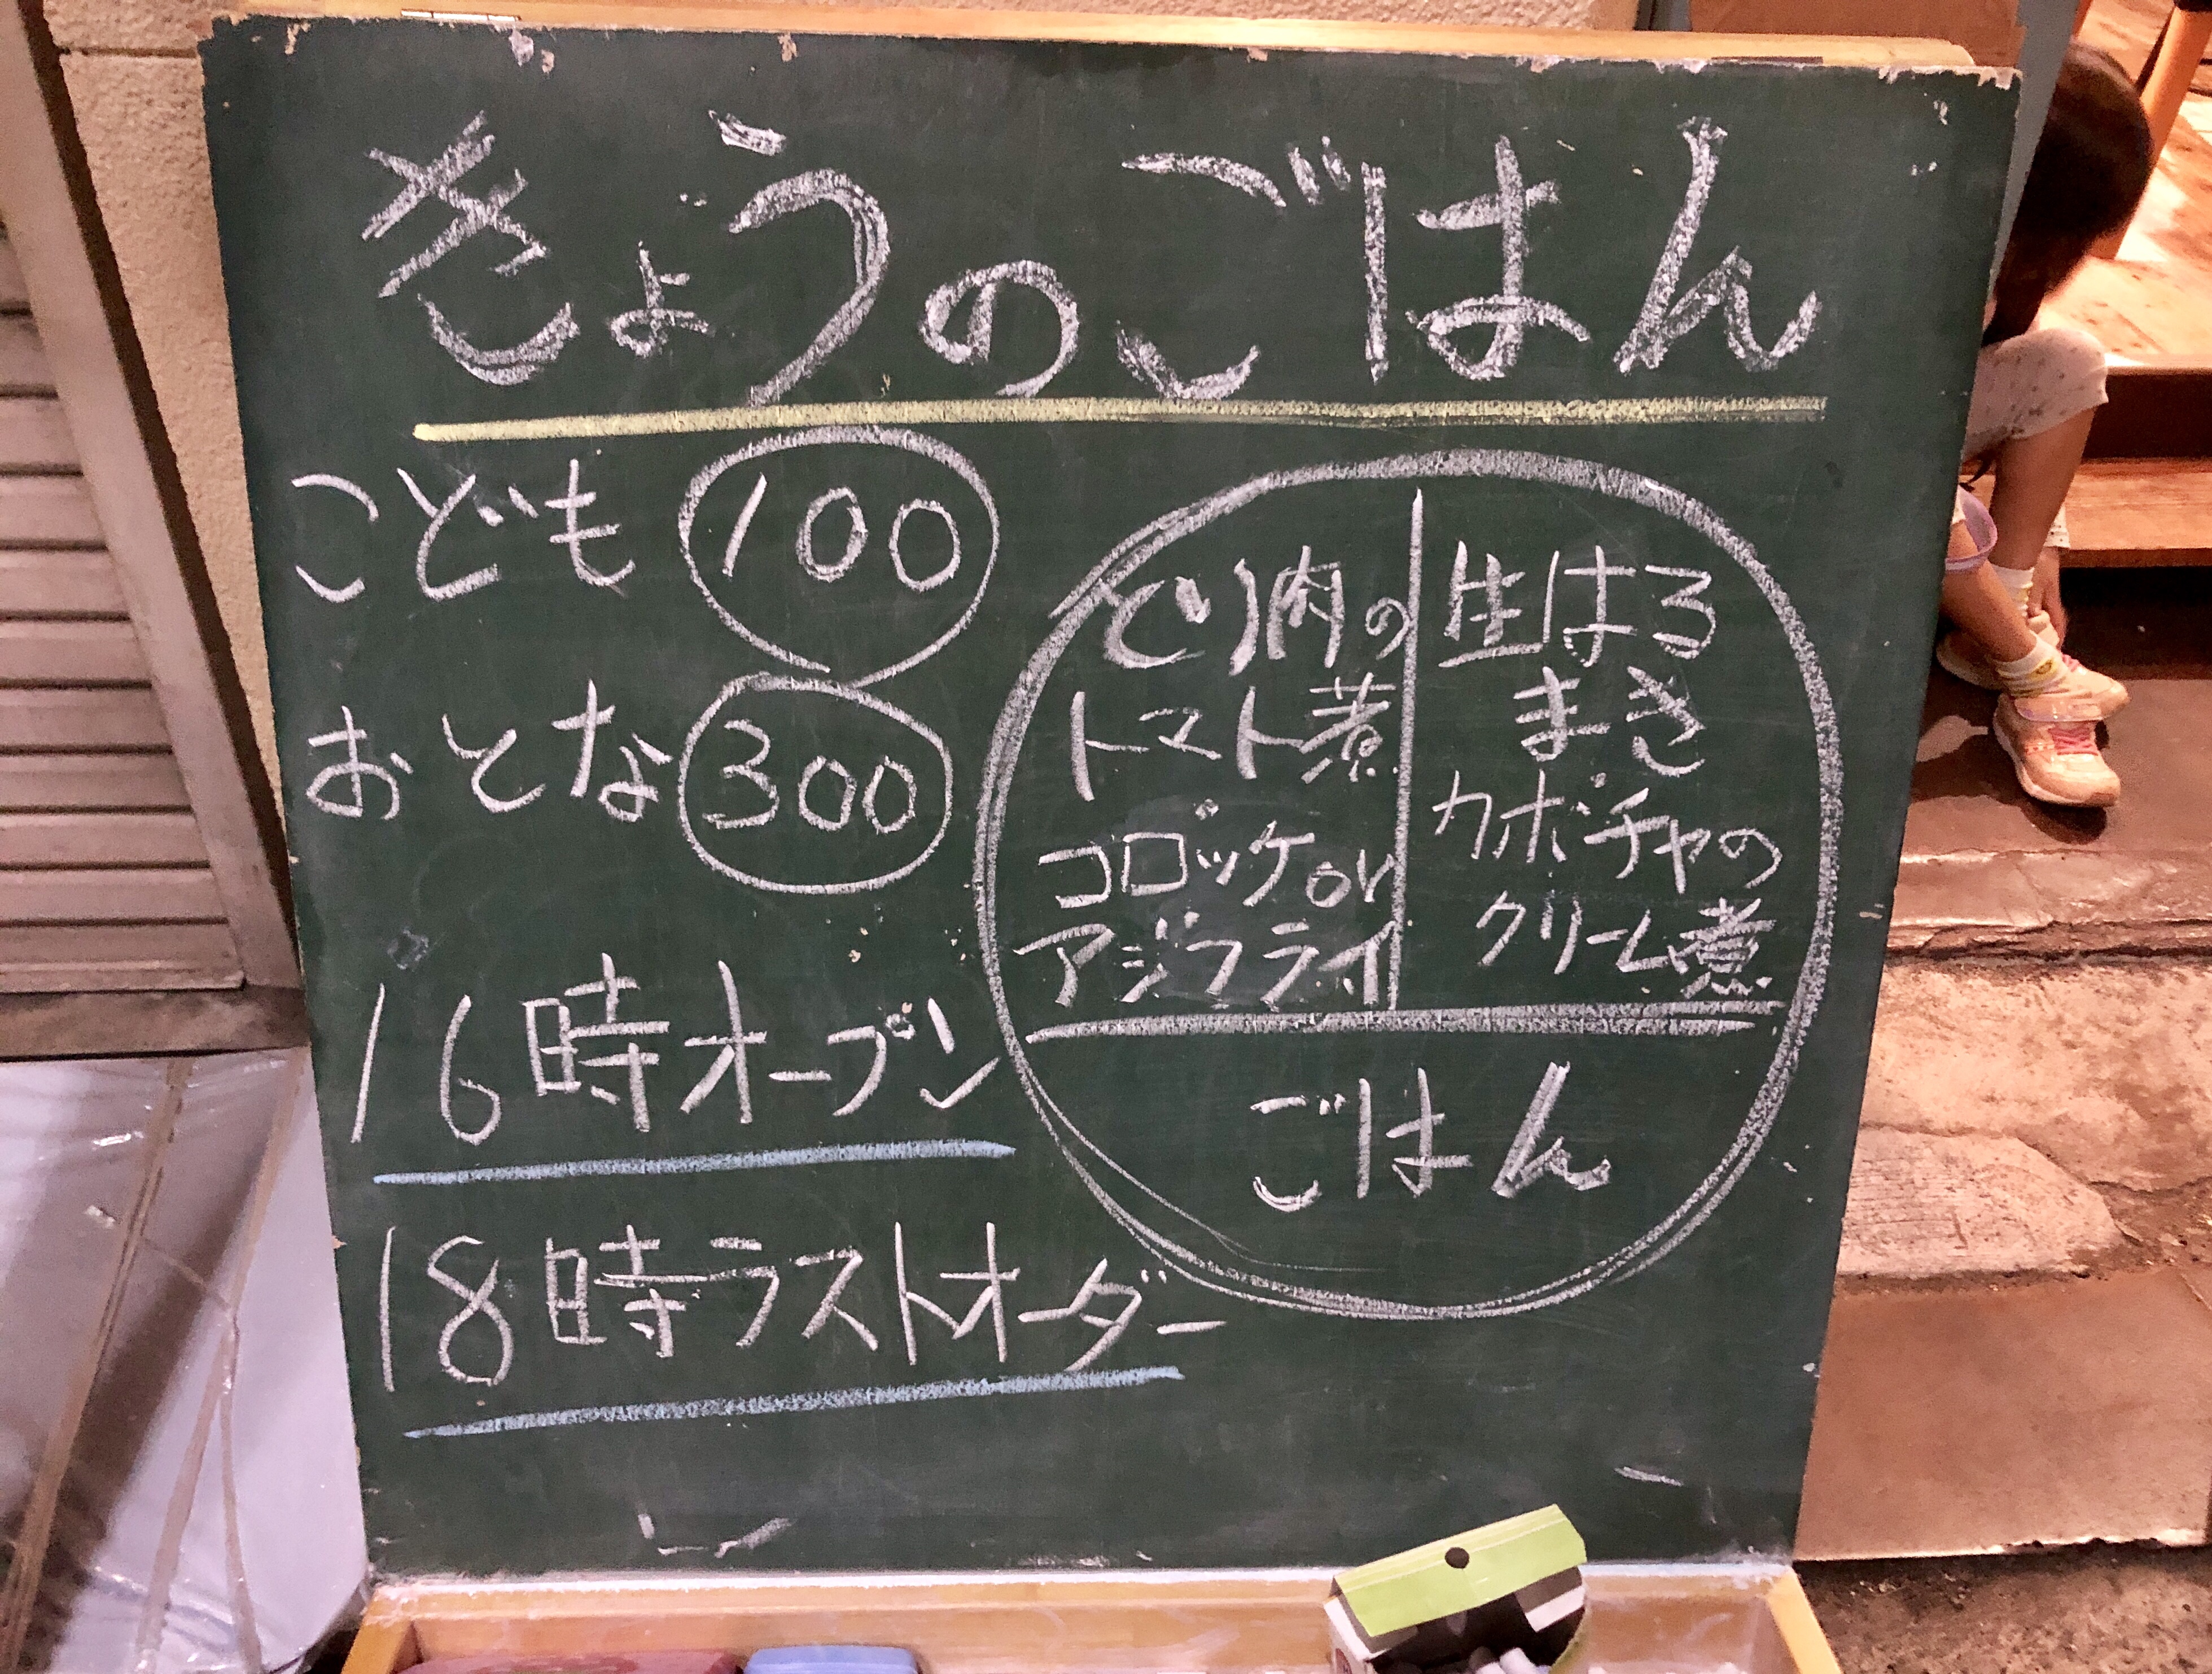 きょうのごはん
こども 100
おとな 300
16時オープン
18時ラストオーダー
とり肉の
トマト煮
コロッケor
アジフライ
生はる
まき
カボチャの
クリーム煮
ごはん